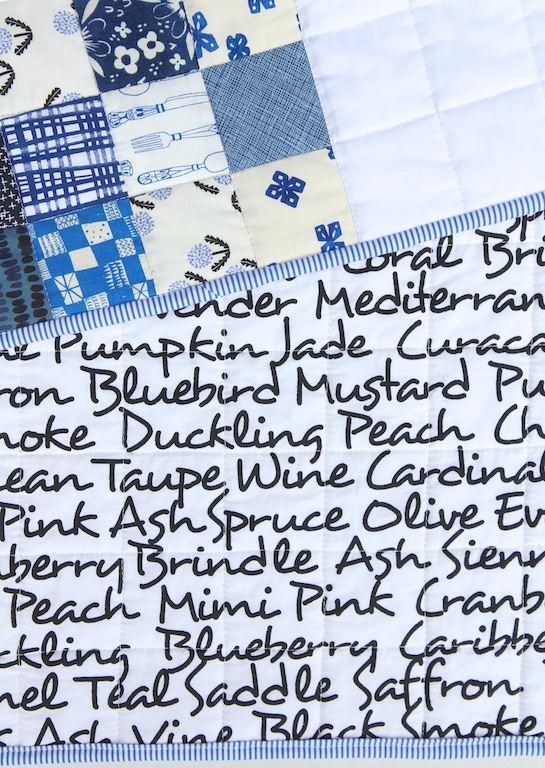 Coral Bri
ender Mediterran
Pumpkin Jade Curaca
ron Bluebird Mustard Pu
moke Duckling Peach Ch
ean Taupe Wine Cardinal
Pink Ash Spruce Olive Ev
berry Brindle Ash Sienn
Peach Mimi Pink Cranb
ckling Blueberry Caribbe
nel Teal Saddle Saffron
Ash Vine Black Smoke